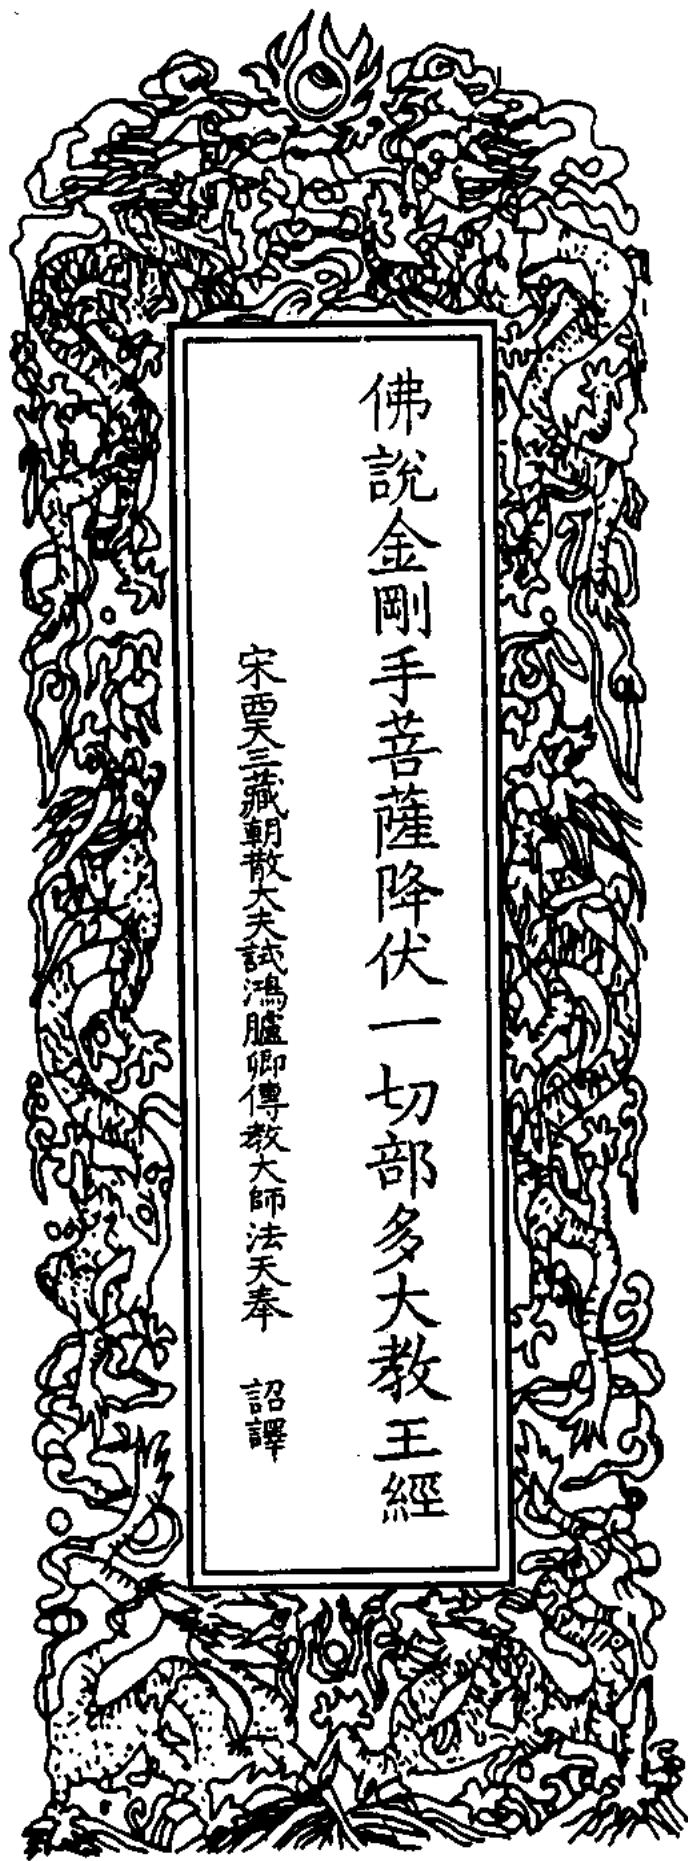 佛說金剛手菩薩降伏一切部多大教王經
宋西天三藏朝散大夫試鴻臚卿傳教大師法天奉　詔譯